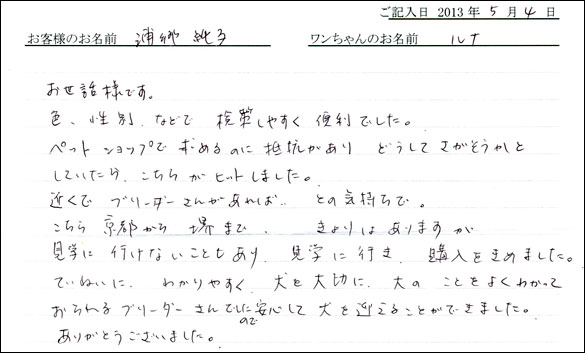 ご記入日 2013 年 5 月 4 日
お客様のお名前 浦郷 純子 ワンちゃんのお名前 ルナ
お世話様です。
色、性別、などで 検索しやすく 便利でした。
ペットショップで 求めるのに 抵抗があり どうして さがそうかと
していたら、こちら が ヒットしました。
近くで ブリーダーさんがあれば‥ との気持ちで。
こちら 京都から 堺まで、 きょりは ありますが
見学に 行けないこともあり、見学に行き、購入をきめました。
ていねいに、わかりやすく、犬を大切に、犬の ことを よくわかって
おられる ブリーダー さんでしたので安心して 犬を迎えることができました。
ありがとうございました。